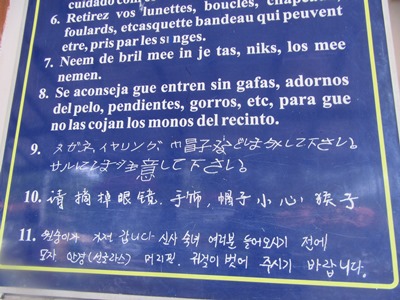 cuidado com
6. Retirez vos lunettes, boucles, chapeau,
foulards, etcasquette bandeau qui peuvent
etre, pris par les singes.
7. Neem de bril mee in je tas, niks, los mee
nemen.
8. Se aconseja gue entren sin gafas, adornos
del pelo, pendientes, gorros, etc, para gue
no las cojan los monos del recinto.
9. メガネ、イヤリング や帽子などはずして下さい。
サルにはご注意して下さい。
10. 请 摘掉眼镜. 手饰, 帽子 小心! 猴子
11. 원숭이가 가져 갑니다 신사 숙녀 여러분 들어오시기 전에
모자 안경(선글라스) 머리핀. 귀걸이 벗어 주시기 바랍니다.